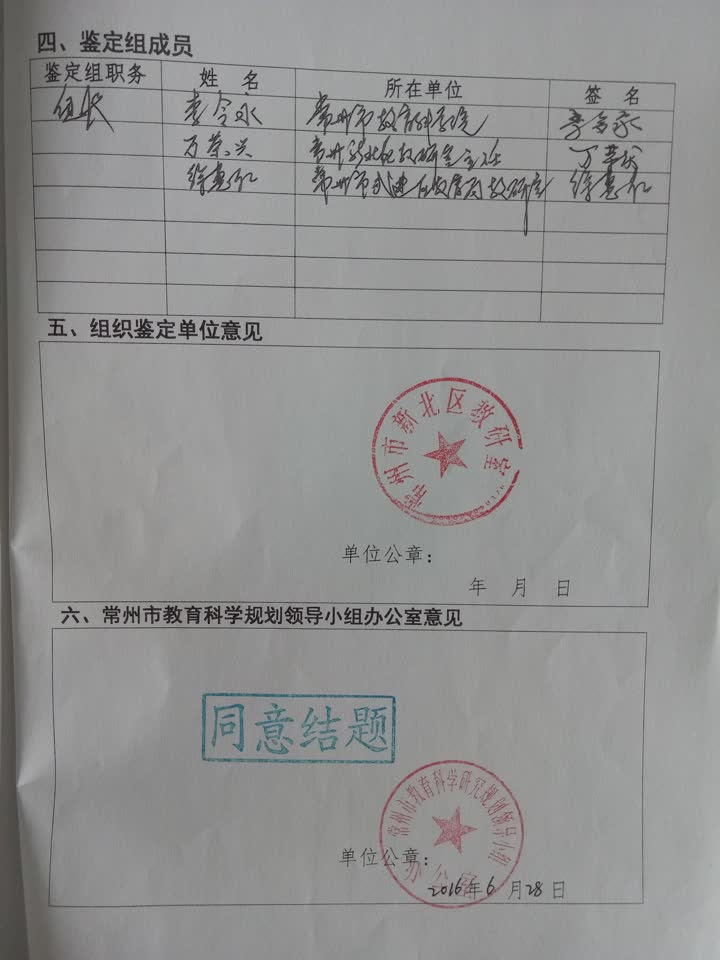 四、鉴定组成员
鉴定组职务 姓 名 所在单位 签 名
组长 李令永 常州市教育科学院 李令永
万荣兴 常州新北区教研室主任
徐惠仁 常州市武进区教育局教研室 徐惠仁
五、组织鉴定单位意见
常州市新北区教研室
单位公章：
年 月 日
六、常州市教育科学规划领导小组办公室意见
同意结题
常州市教育科学研究规划领导小组
办公室
单位公章：
2016年6月28日